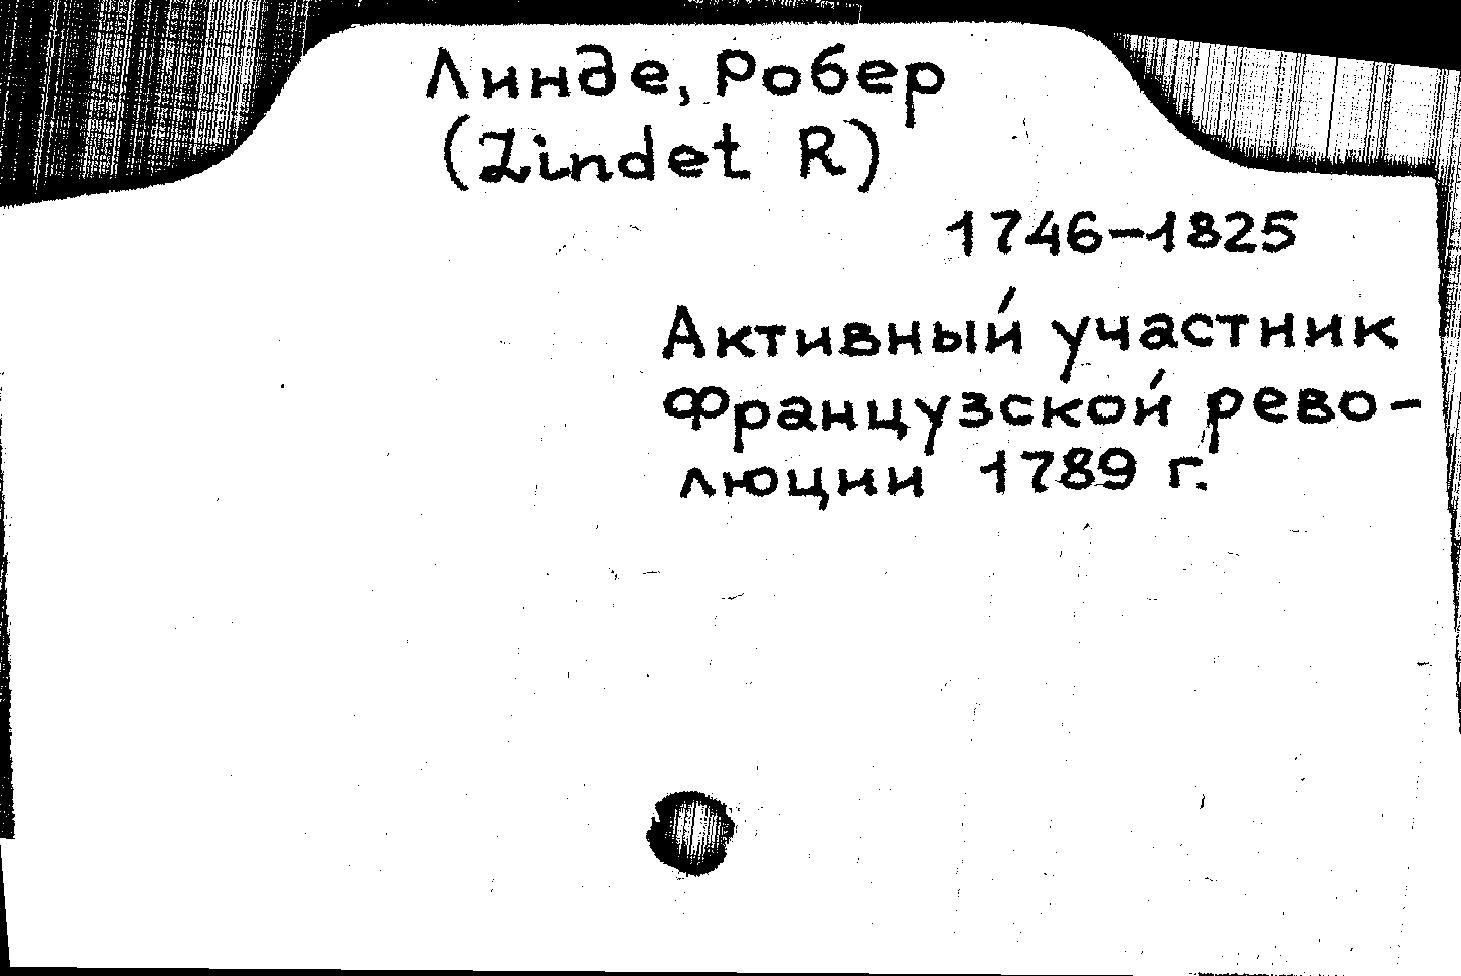 Линде, Робер
(Lindet R)
1746-1825
Активный участник
Французской рево-
люции 1789 г.